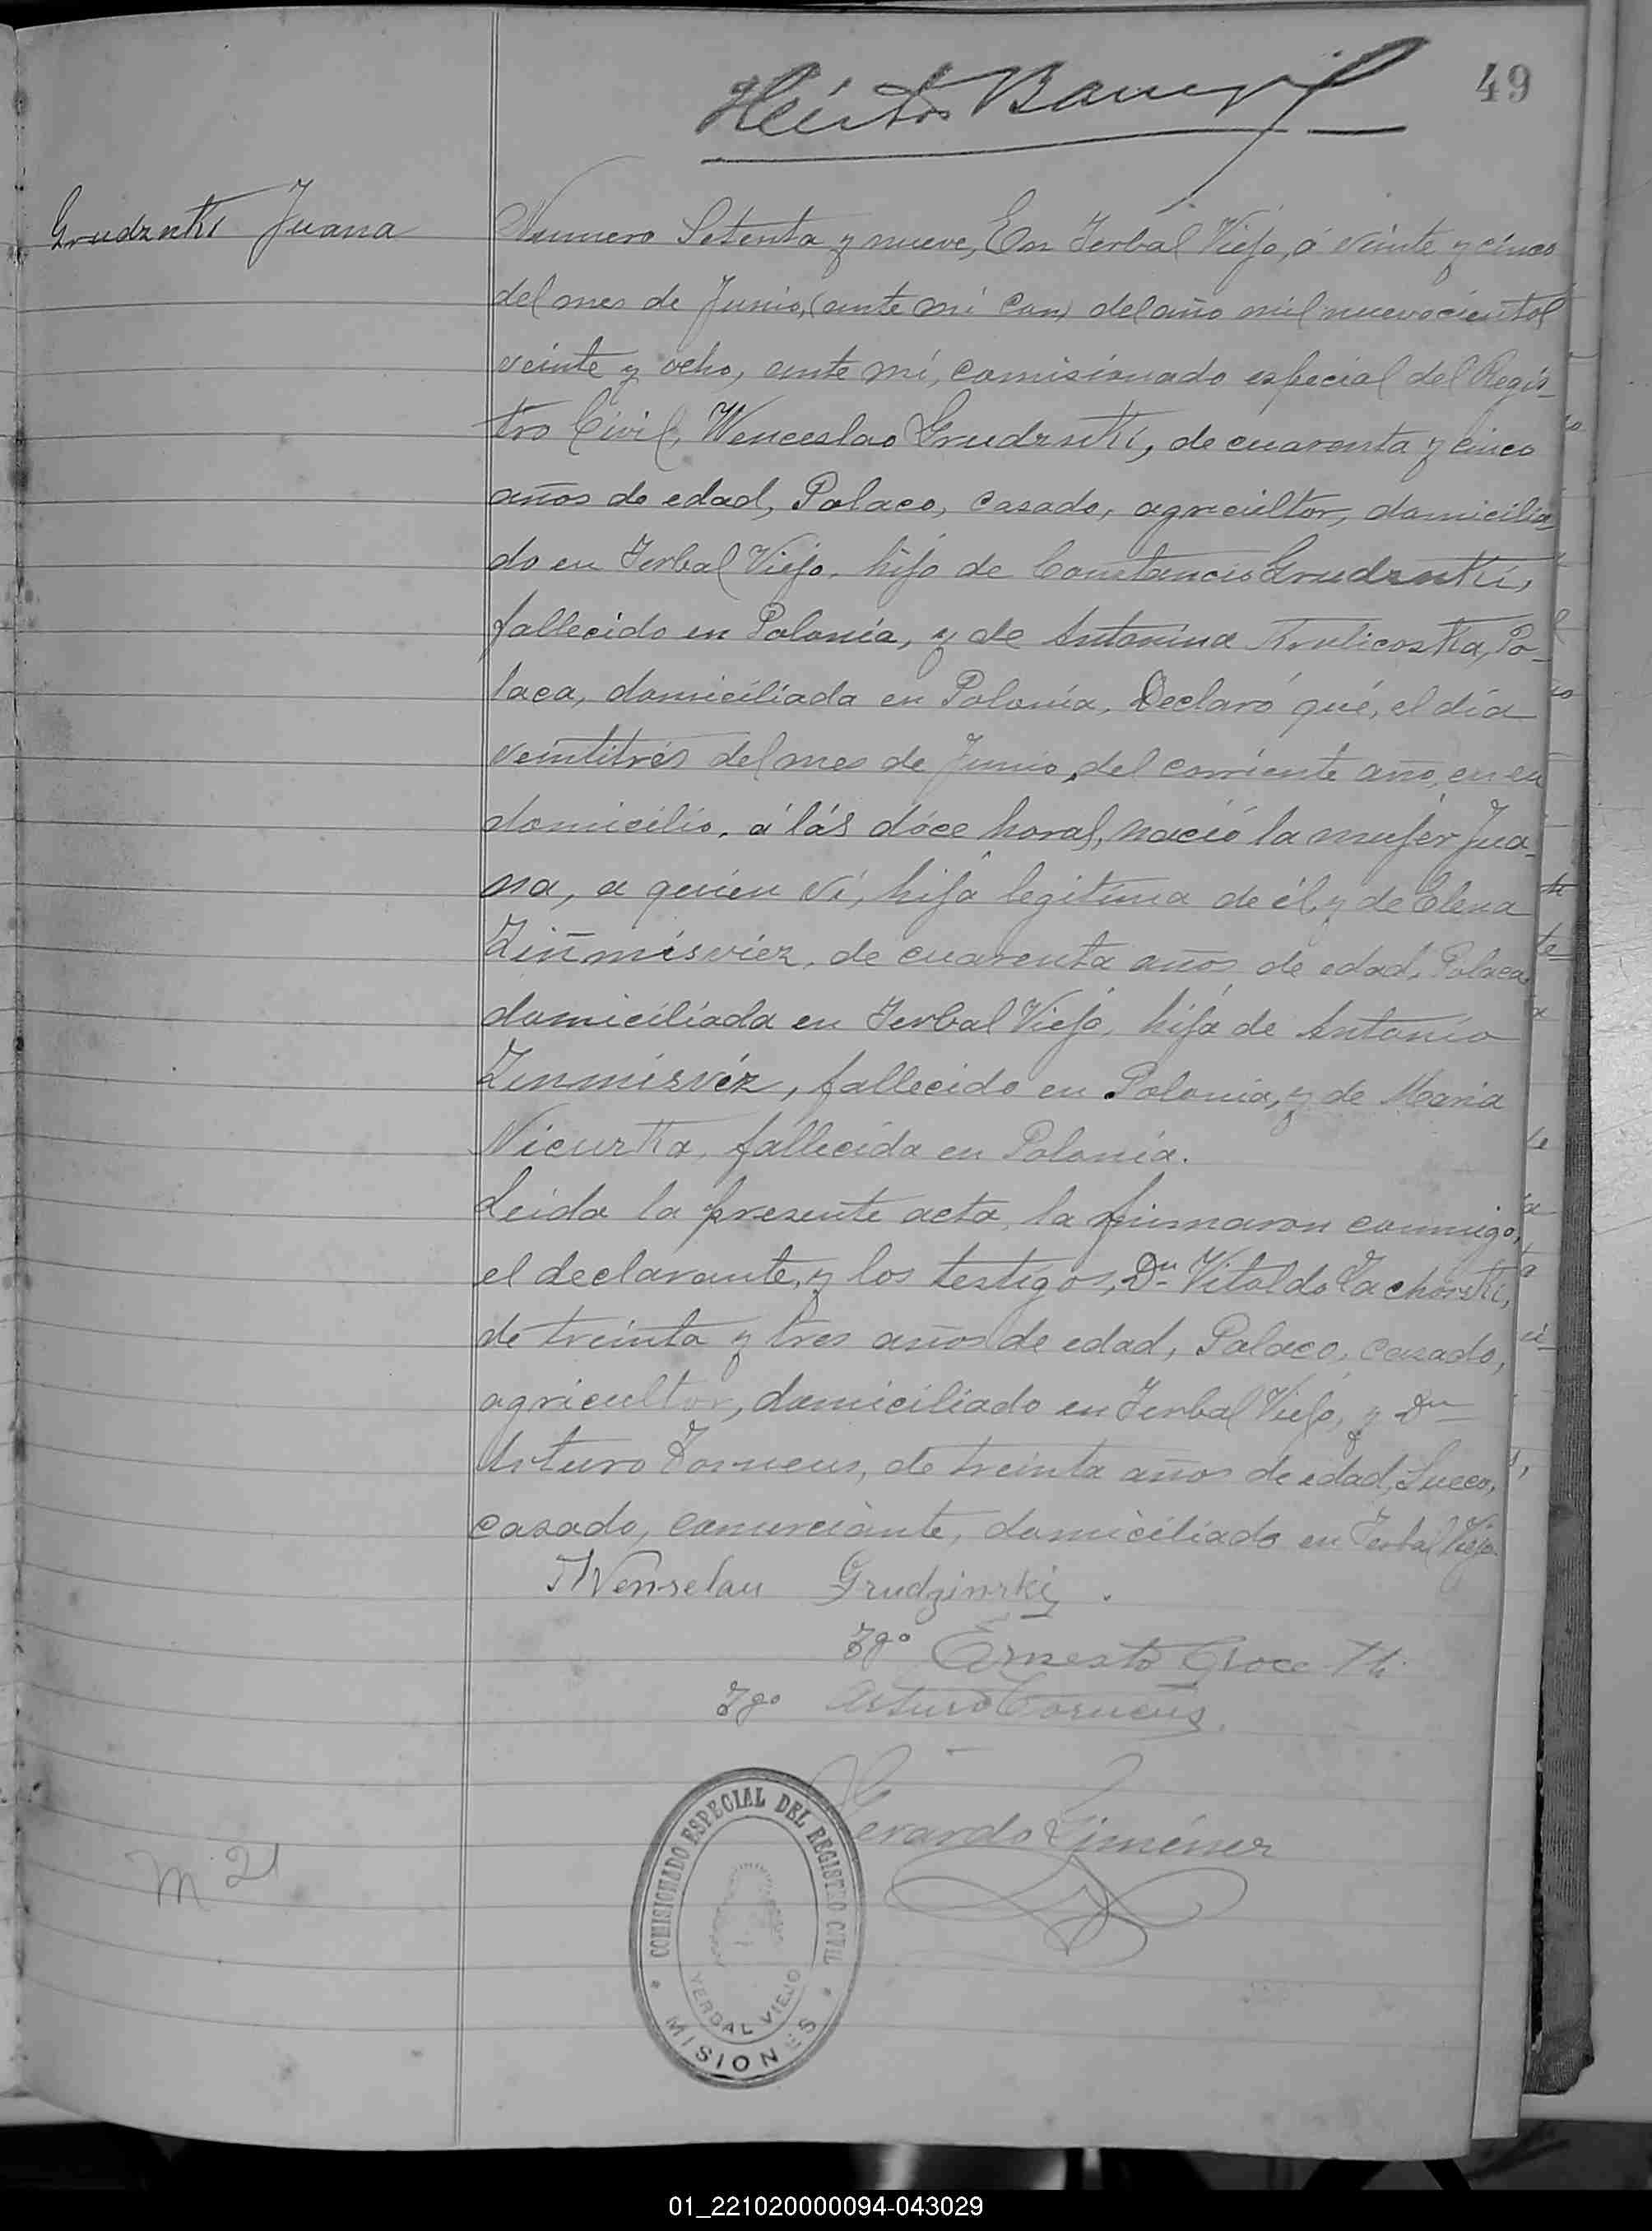 49
Grudznki Juana
Numero Setenta y nueve, En Yerbal Viejo, á veinte y cinco
del mes de Junio, (ante mi Com) del año mil nuevecientos
veinte y ocho, ante mí, comisionado especial del Regis-
tro Civil, Wenceslao Grudznki, de cuarenta y cinco
años de edad, Polaco, casado, agricultor, domicilia-
do en Yerbal Viejo, hijo de Constancio Grudznki,
fallecido en Polonia, y de Antonina Krulicoska, Po-
laca, domiciliada en Polonia, Declaró qué, el día
veintitrés del mes de Junio, del corriente año, en su
domicilio, á lás dóce horas, nació la mujer Jua-
na, a quien ví, hija legitima de él, y de Elena
Ziñmisviez, de cuarenta años de edad, Polaca
domiciliada en Yerbal Viejo, hija de Antonio
Zinmisviéz, fallecido en Polonia, y de Maria
Nicurka, fallecida en Polonia.
Leida la presente acta, la firmaron conmigo,
el declarante, y los testigos, Dn Vitoldo
de treinta y tres años de edad, Polaco, casado,
agricultor, domiciliado en Yerbal Viejo, y Dn
Arturo Torneus, de treinta años de edad, Sueco,
casado, comerciante, domiciliado en Yerbal Viejo.
Wenselau Grudzinski.
Tgo Ernesto
Tgo Arturo Torneus.
Gerardo Jiménez
COMISIONADO ESPECIAL DEL REGISTRO CIVIL
YERBAL VIEJO
MISIONES
M 21
01_221020000094-043029